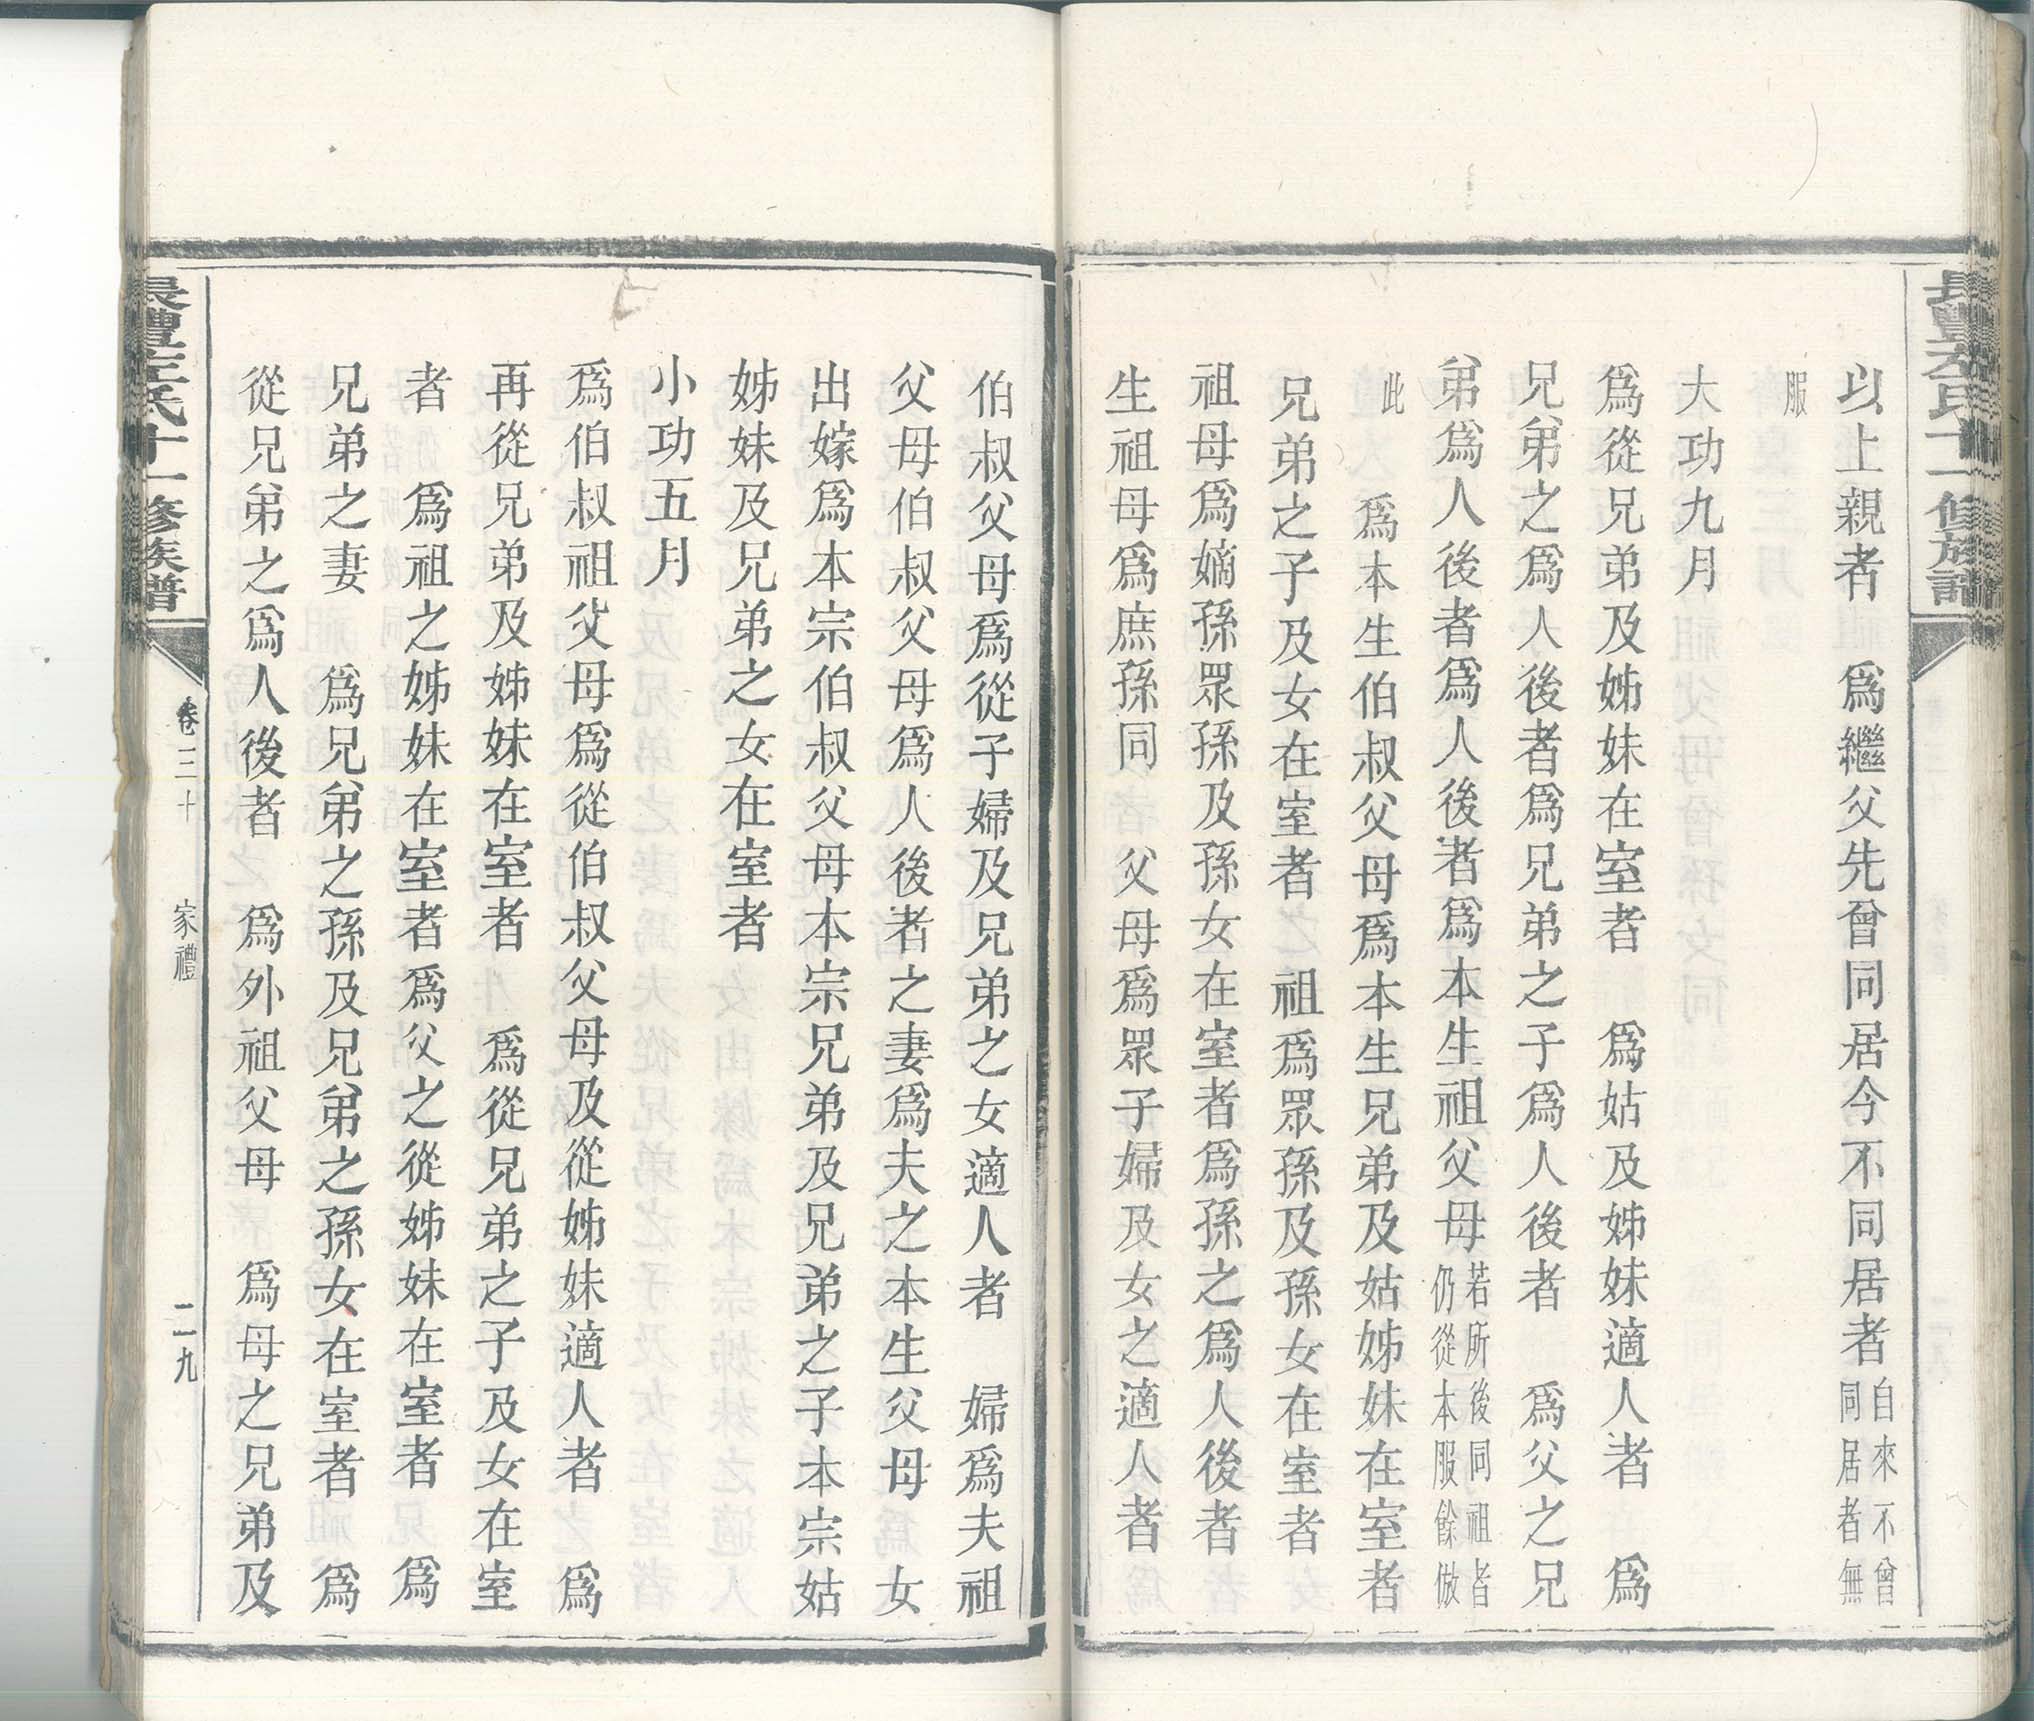 長豐左氏十一修族譜
以上親者　爲繼父先曾同居今不同居者自來不曾同居者無
服
大功九月
爲從兄弟及姊妹在室者　爲姑及姊妹適人者　爲
兄弟之爲人後者爲兄弟之子爲人後者　爲父之兄
弟爲人後者爲人後者爲本生祖父母若所後同祖者仍從本服餘倣
此　爲本生伯叔父母爲本生兄弟及姑姊妹在室者
兄弟之子及女在室者　祖爲眾孫及孫女在室者
祖母爲嫡孫眾孫及孫女在室者爲孫之爲人後者
生祖母爲庶孫同　父母爲眾子婦及女之適人者
伯叔父母爲從子婦及兄弟之女適人者　婦爲夫祖
父母伯叔父母爲人後者之妻爲夫之本生父母　女
出嫁爲本宗伯叔父母本宗兄弟及兄弟之子本宗姑
姊妹及兄弟之女在室者
小功五月
爲伯叔祖父母爲從伯叔父母及從姊妹適人者　爲
再從兄弟及姊妹在室者　爲從兄弟之子及女在室
者　爲祖之姊妹在室者爲父之從姊妹在室者　爲
兄弟之妻　爲兄弟之孫及兄弟之孫女在室者　爲
從兄弟之爲人後者　爲外祖父母　爲母之兄弟及
長豐左氏十一修族譜
卷三十　家禮　二九